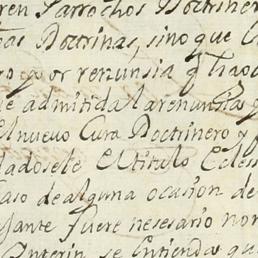 ren Parrochos Doctriner
as Doctrinas, sino que
por renunsia q hao
e admitida la renunsia q
El nuevo Cura Doctrinero y
dadosele El titulo Ecless
caso de alguna ocasion de
gante fuere nesesario nom
Interin se Entienda que